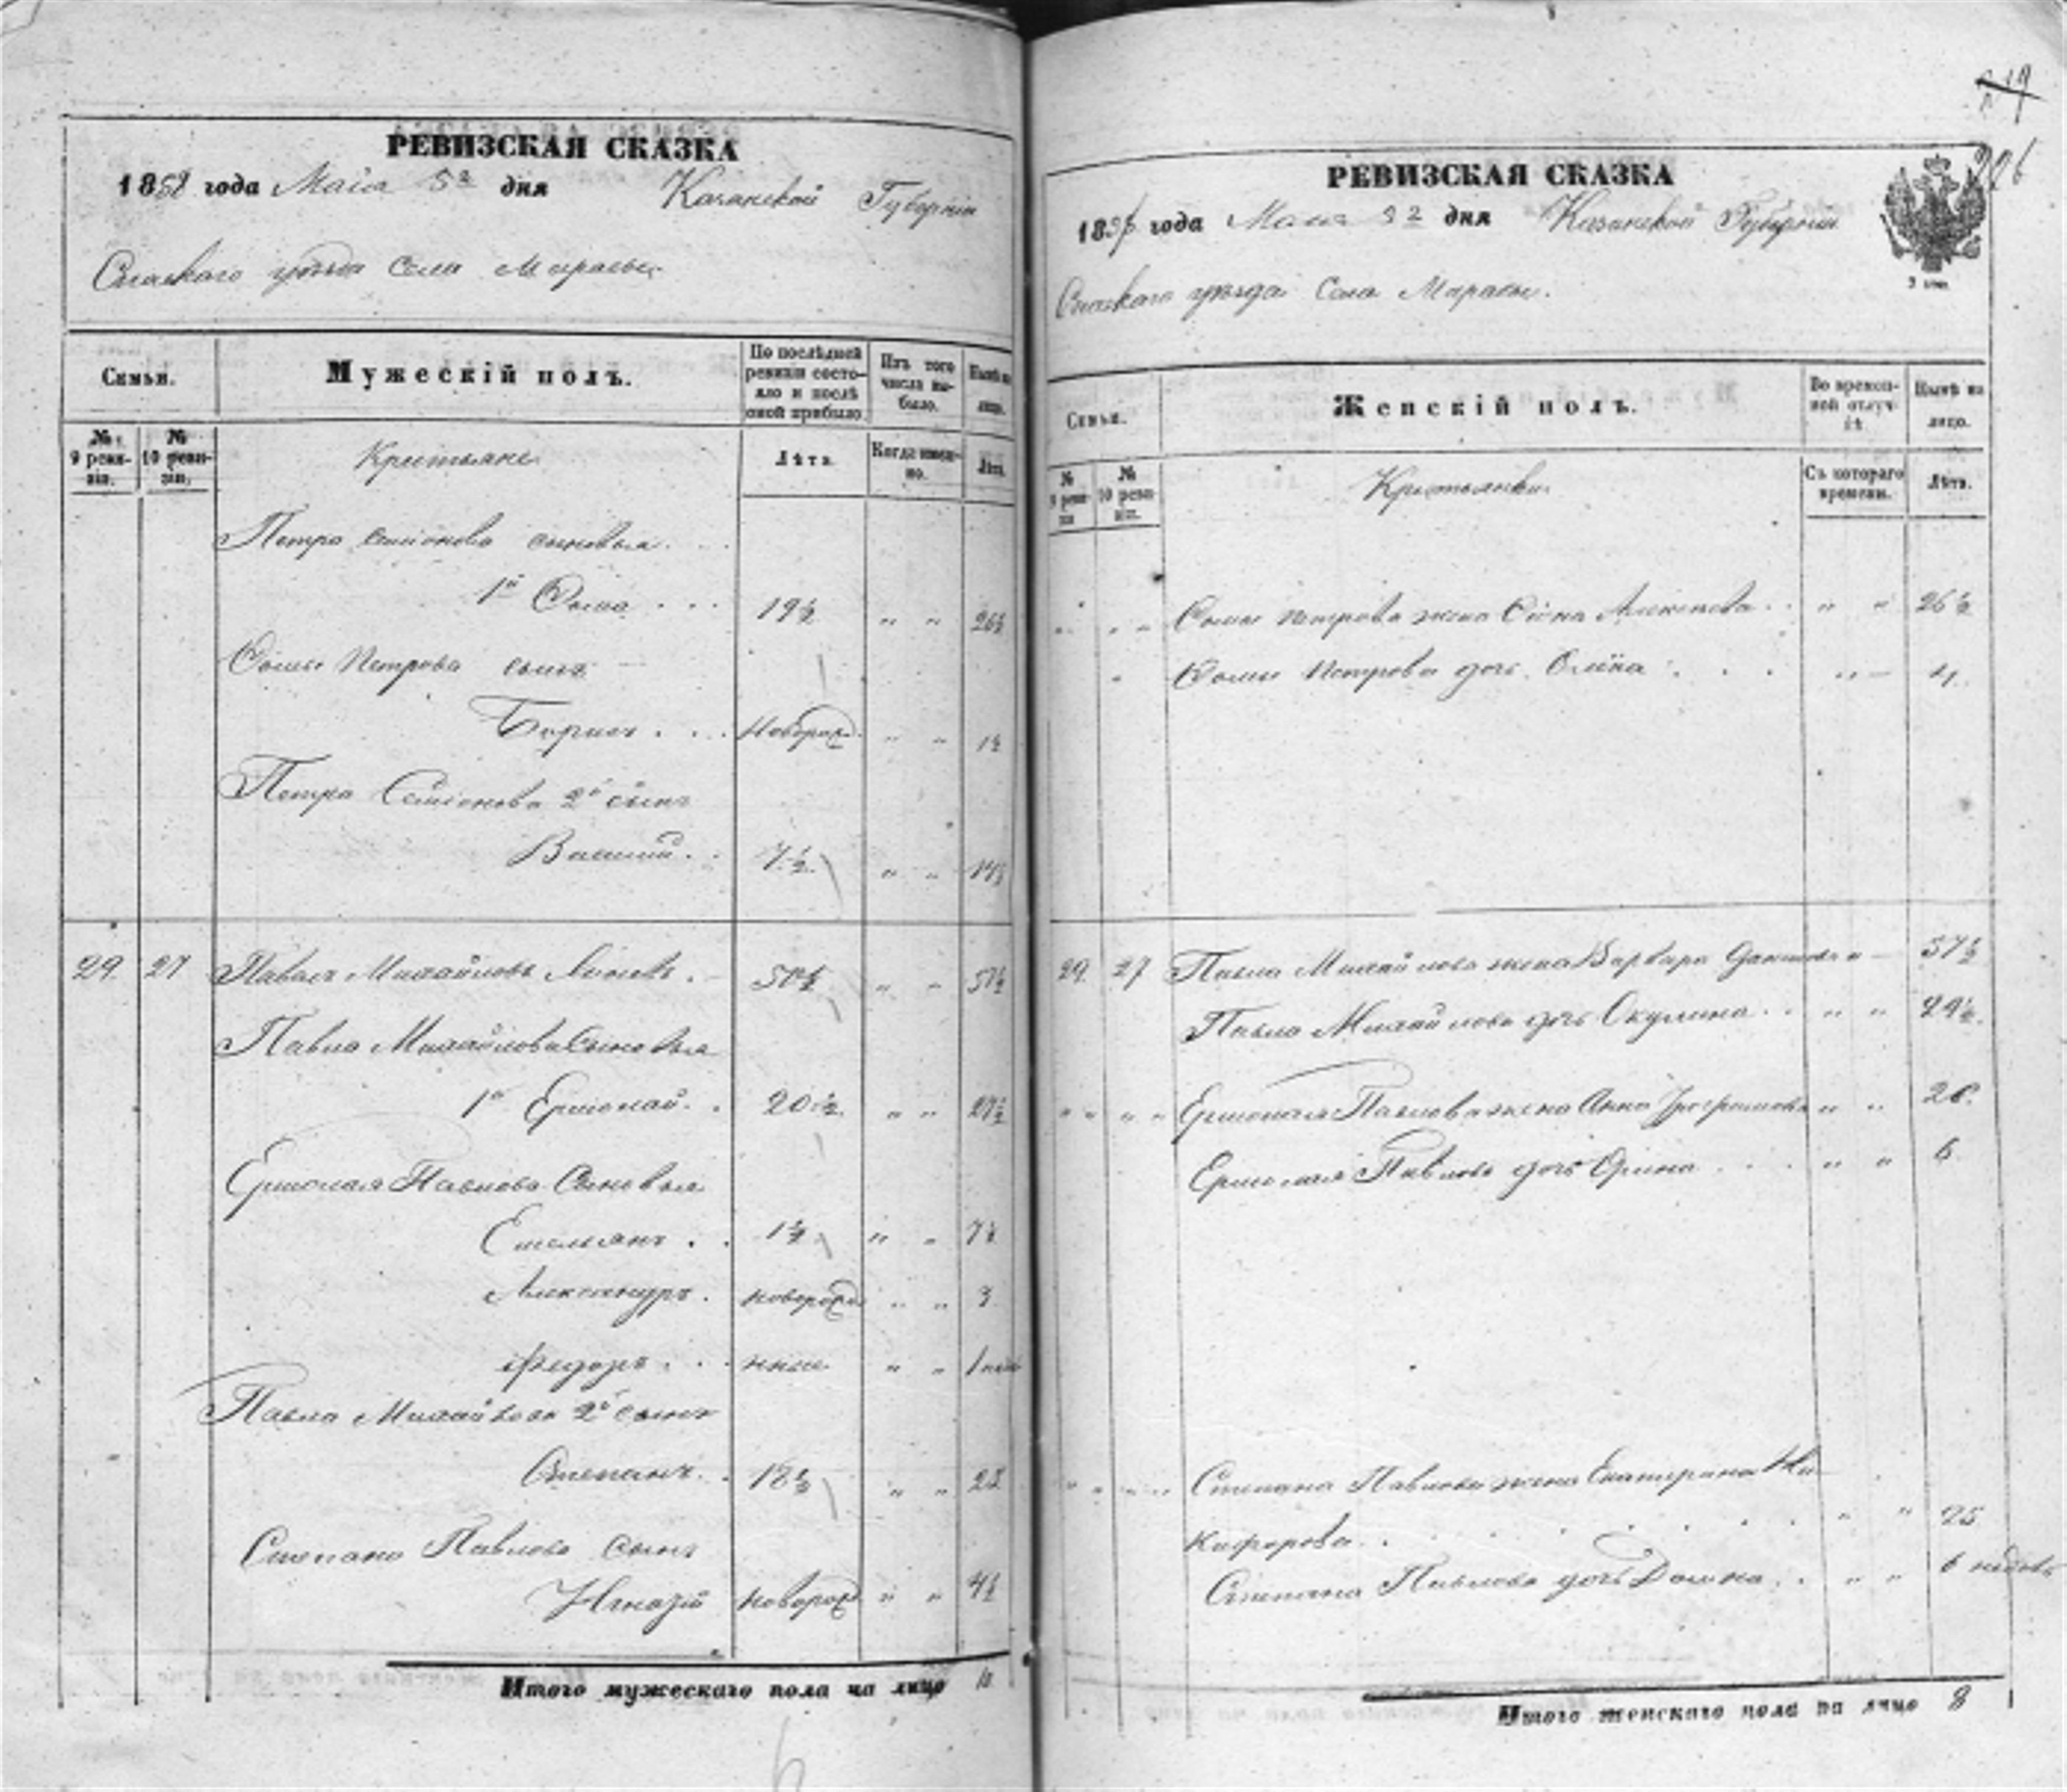 РЕВИЗСКАЯ СКАЗКА
1858 года Маія 3го дня Казанской Губерніи
Спаскаго уѣзда Села Марасы
Семьи. Мужескій полъ. По послѣдней ревизіи состояло и послѣ оной прибыло. Изъ того числа выбыло. Нынѣ на лицо.
№ 9 ревизіи. № 10 ревизіи. Крестьяне Лѣта. Когда именно. Лѣта.
Петра Семіонова сыновья
1й Фома 19½ " " 26½
Фомы Петрова сынъ
Борисъ новорож. " " 1½
Петра Семіонова 2й сынъ
Василий 7½ " " 14½
29 27 Павелъ Михайловъ 50½ " " 57½
Павла Михайлова Сыновья
1й Ермолай 20½ " " 27½
Ермолая Павлова Сыновья
Емельянъ 1½ " " 7½
Александръ новорож " " 3
Федоръ " " 1
Павла Михайлова 2й сынъ
Степанъ 18½ " " 25
Степана Павлова сынъ
новорож " " 4½
Итого мужескаго пола на лицо 11
226
РЕВИЗСКАЯ СКАЗКА
1858 года Маія 3го дня Казанской Губерніи
Спаскаго уѣзда Села Марасы.
Семьи. Женскій полъ. Во временной отлучкѣ Нынѣ на лицо.
№ 9 ревизіи № 10 ревизіи. Крестьянки Съ котораго времени. Лѣта.
Фомы Петрова жена " " 26½
Фомы Петрова дочь " 4
29 27 Павла Михайлова жена Варвара 57½
Павла Михайлова дочь Окулина " " 29½
" " " " Ермолая Павлова жена Анна " " 26
Ермолая Павлова дочь Орина " " 6
" " " " Степана Павлова жена Екатерина Ни-
кифорова " " 25
Степана Павлова дочь Домна " " 6 недѣль
Итого женскаго пола на лицо 8